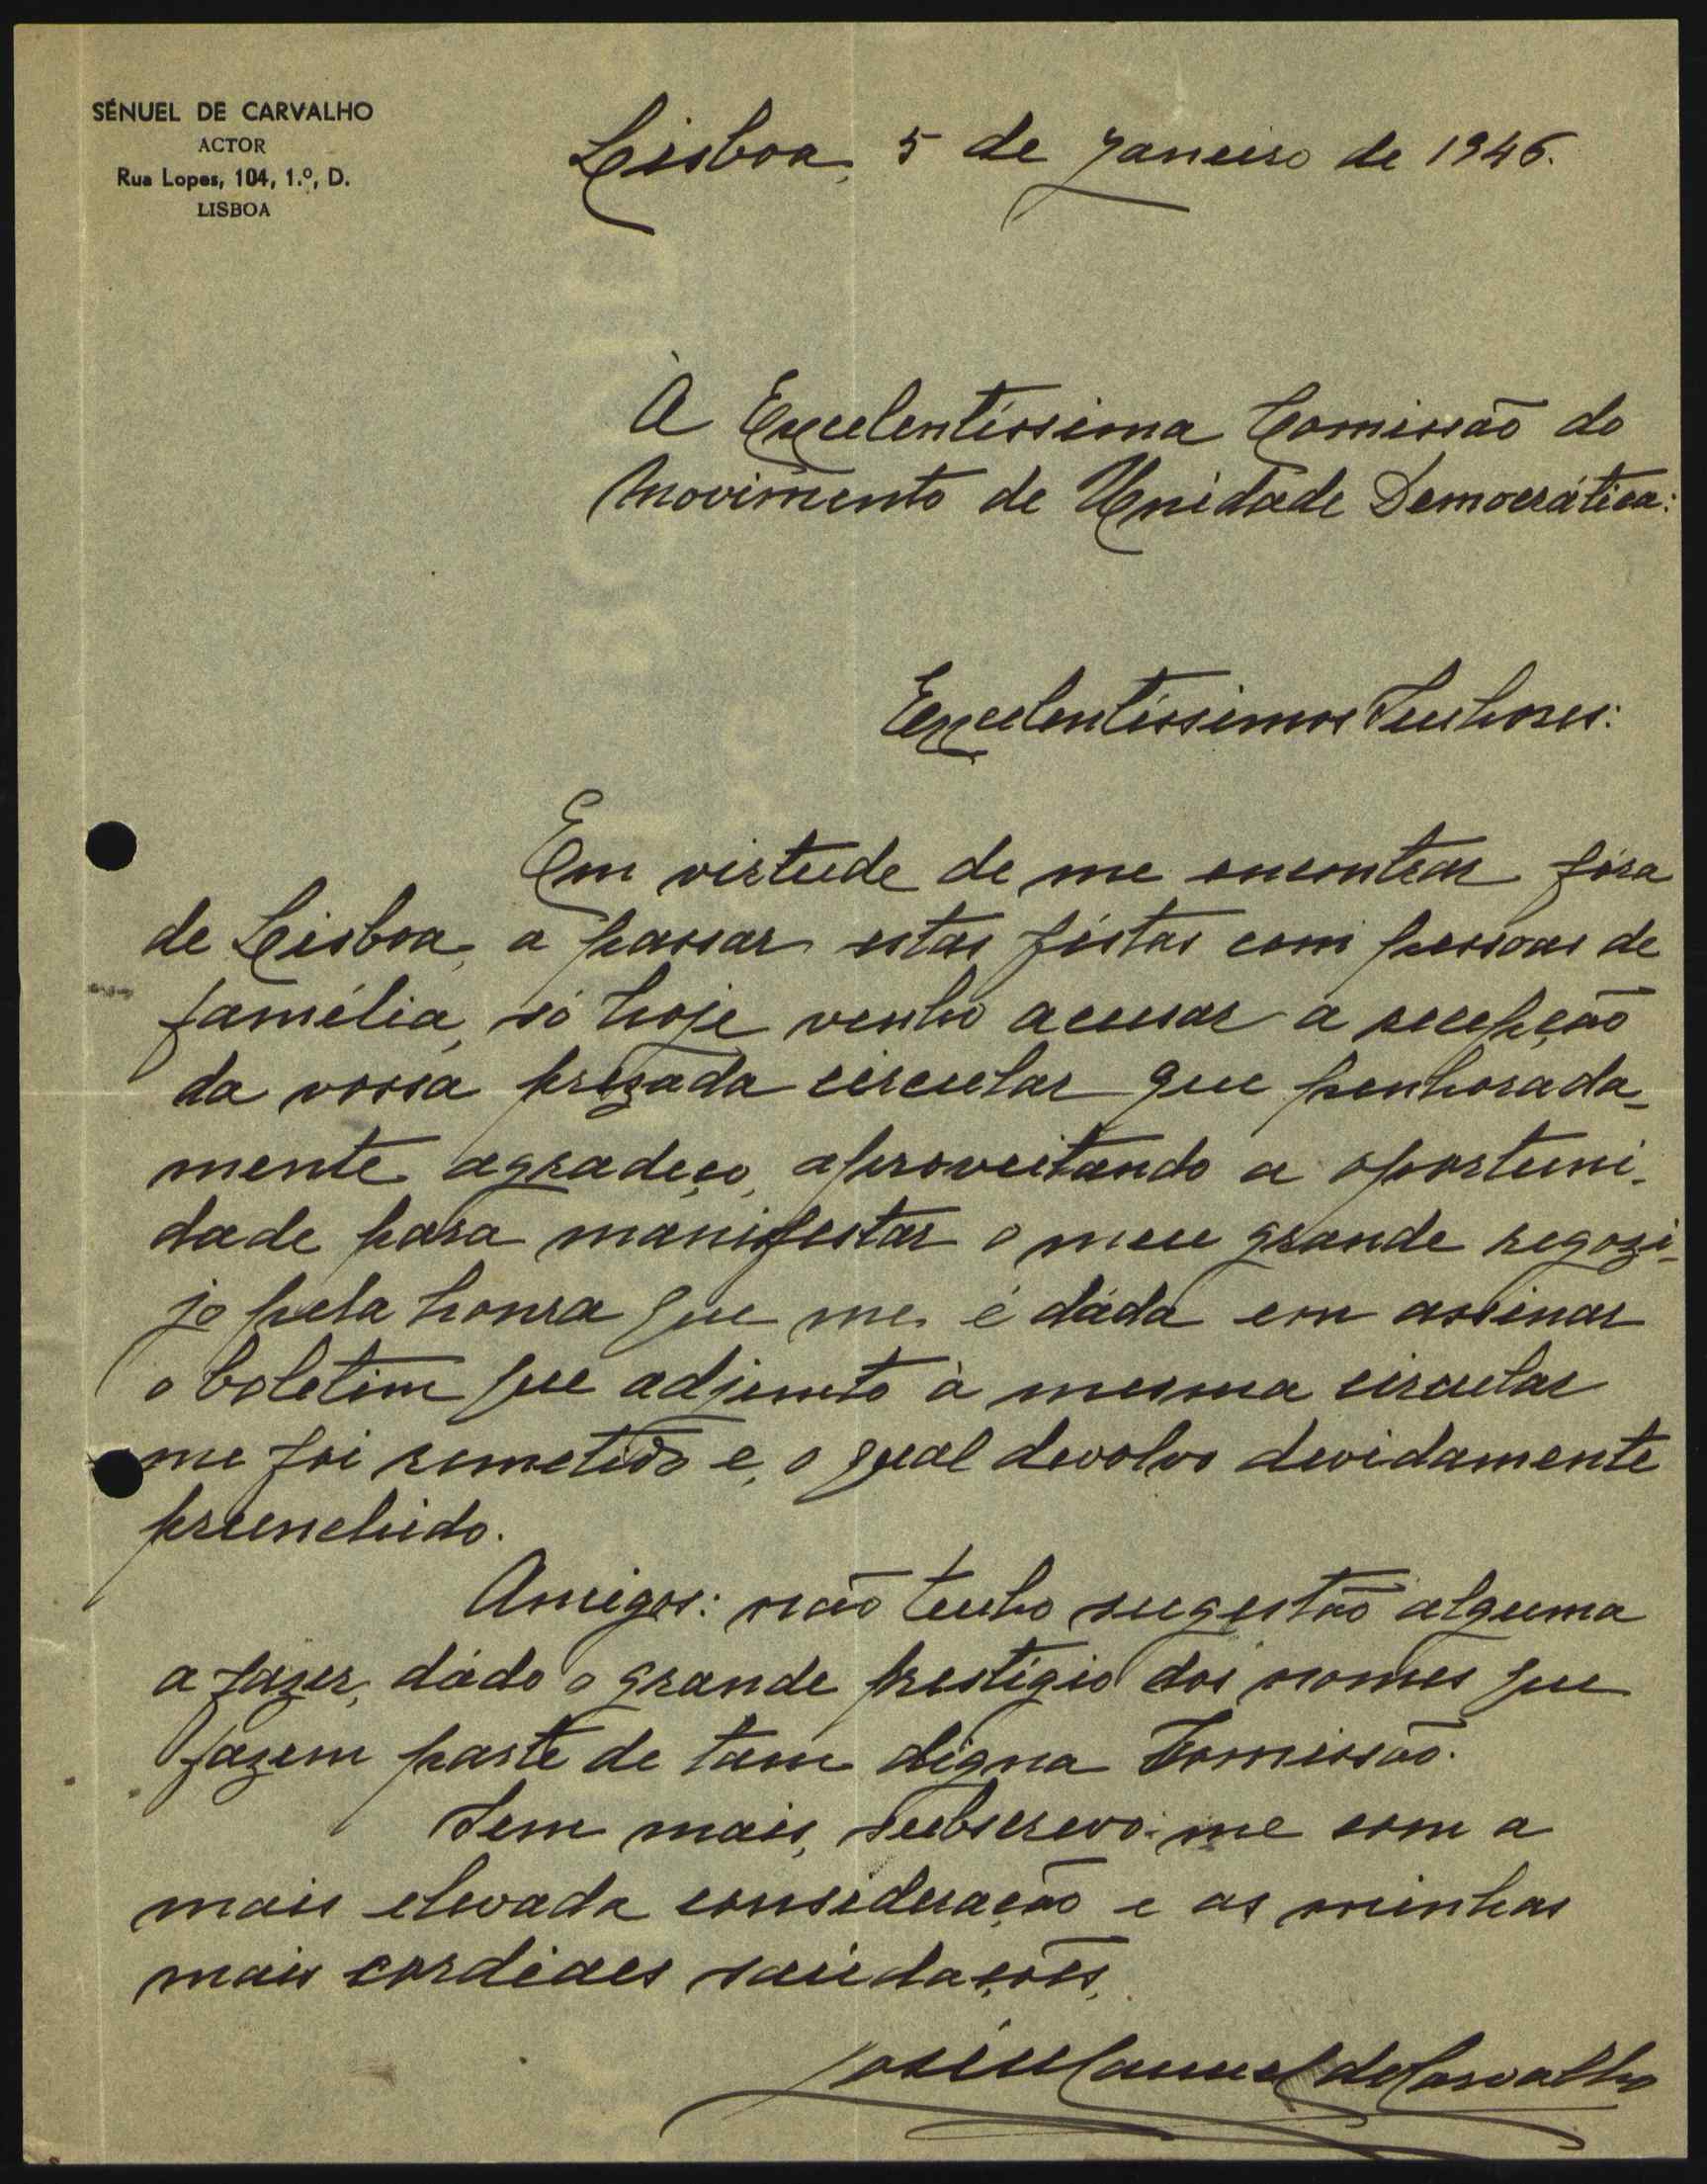 SÉNUEL DE CARVALHO
ACTOR
Rua Lopes, 104, 1.º, D.
LISBOA
Lisboa, 5 de Janeiro de 1946.
À Excelentíssima Comissão do
Movimento de Unidade Democrática:
Excelentíssimos Senhores:
Em virtude de me encontrar fóra
de Lisboa, a passar estas féstas com pessoas de
família, só hoje venho acusar a recepção
da vossa prezada circular que penhorada-
mente agradeço, aproveitando a oportuni-
dade para manifestar o meu grande regozi-
jo pela honra que me é dáda em assinar
o boletim que adjunto à mesma circular
me foi remetido e, o qual devolvo devidamente
preenchido.
Amigos: não tenho sugestão alguma
a fazer, dádo o grande prestígio dos nomes que
fazem parte de tam digna Comissão.
Sem mais, subscrevo-me com a
mais elevada consideração e as minhas
mais cordiaes saúdações,
José Manuel de Carvalho